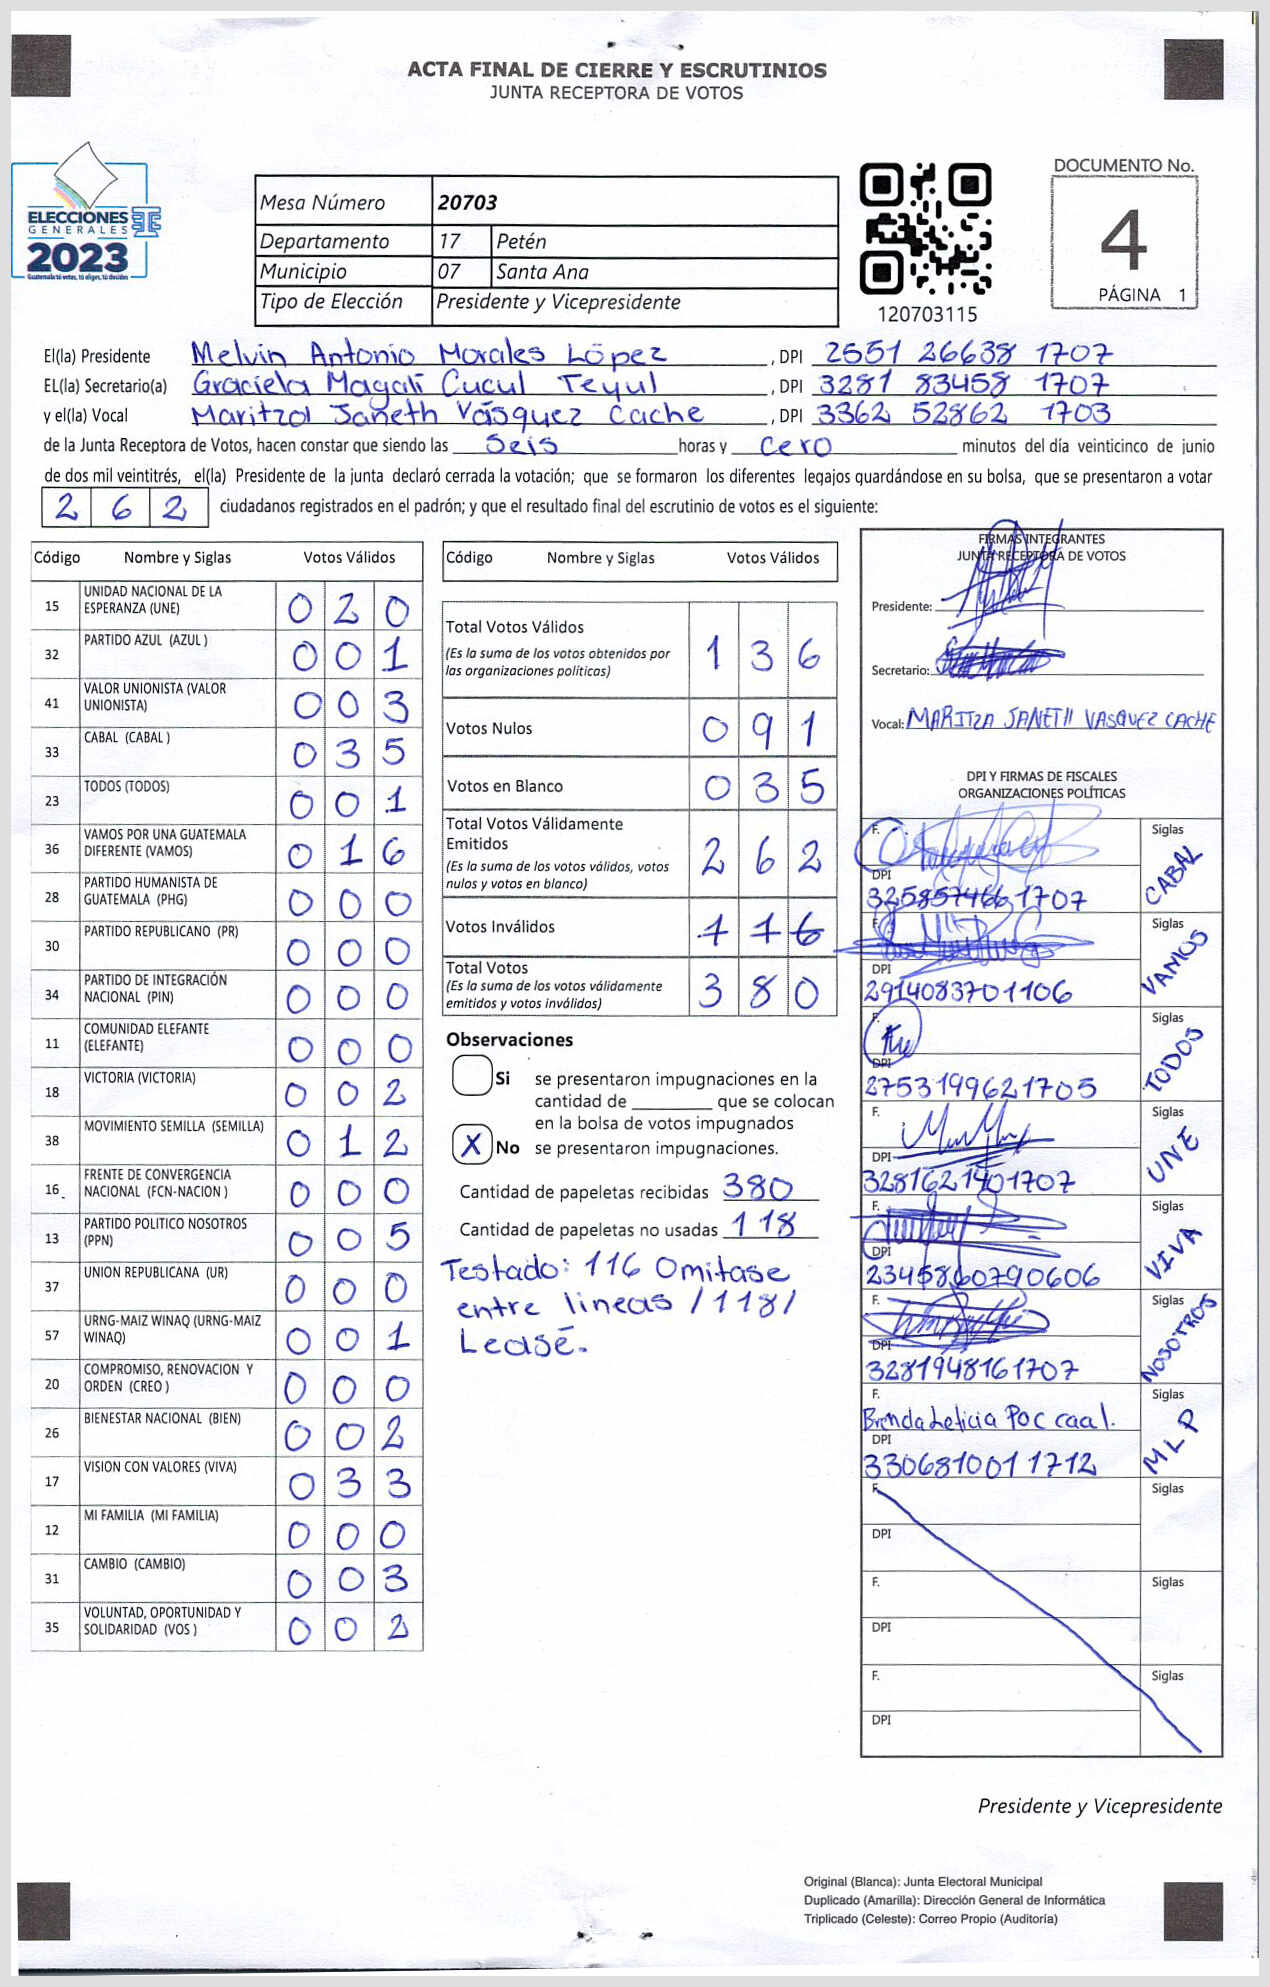 ACTA FINAL DE CIERRE Y ESCRUTINIOS
JUNTA RECEPTORA DE VOTOS
ELECCIONES
GENERALES
2023
Guatemala tú votas, tú eliges, tú decides
Mesa Número 20703
Departamento 17 Petén
Municipio 07 Santa Ana
Tipo de Elección Presidente y Vicepresidente
120703115
DOCUMENTO No.
4
PÁGINA 1
El(la) Presidente Melvin Antonio Morales López, DPI 2551 26638 1707
EL(la) Secretario(a) Graciela Magalí Cucul Teyul, DPI 3281 83458 1707
y el(la) Vocal Maritza Janeth Vásquez Cache, DPI 3362 52862 1703
de la Junta Receptora de Votos, hacen constar que siendo las Seis horas y cero minutos del día veinticinco de junio
de dos mil veintitrés, el(la) Presidente de la junta declaró cerrada la votación; que se formaron los diferentes legajos guardándose en su bolsa, que se presentaron a votar
262 ciudadanos registrados en el padrón; y que el resultado final del escrutinio de votos es el siguiente:
Código Nombre y Siglas Votos Válidos
15 UNIDAD NACIONAL DE LA ESPERANZA (UNE) 020
32 PARTIDO AZUL (AZUL ) 001
41 VALOR UNIONISTA (VALOR UNIONISTA) 003
33 CABAL (CABAL ) 035
23 TODOS (TODOS) 001
36 VAMOS POR UNA GUATEMALA DIFERENTE (VAMOS) 016
28 PARTIDO HUMANISTA DE GUATEMALA (PHG) 000
30 PARTIDO REPUBLICANO (PR) 000
34 PARTIDO DE INTEGRACIÓN NACIONAL (PIN) 000
11 COMUNIDAD ELEFANTE (ELEFANTE) 000
18 VICTORIA (VICTORIA) 002
38 MOVIMIENTO SEMILLA (SEMILLA) 012
16 FRENTE DE CONVERGENCIA NACIONAL (FCN-NACION ) 000
13 PARTIDO POLITICO NOSOTROS (PPN) 005
37 UNION REPUBLICANA (UR) 000
57 URNG-MAIZ WINAQ (URNG-MAIZ WINAQ) 001
20 COMPROMISO, RENOVACION Y ORDEN (CREO ) 000
26 BIENESTAR NACIONAL (BIEN) 002
17 VISION CON VALORES (VIVA) 033
12 MI FAMILIA (MI FAMILIA) 000
31 CAMBIO (CAMBIO) 003
35 VOLUNTAD, OPORTUNIDAD Y SOLIDARIDAD (VOS ) 002
Código Nombre y Siglas Votos Válidos
Total Votos Válidos 136
(Es la suma de los votos obtenidos por
las organizaciones políticas)
Votos Nulos 091
Votos en Blanco 035
Total Votos Válidamente
Emitidos 262
(Es la suma de los votos válidos, votos
nulos y votos en blanco)
Votos Inválidos 116
Total Votos 380
(Es la suma de los votos válidamente
emitidos y votos inválidos)
Observaciones
Si se presentaron impugnaciones en la
cantidad de ________ que se colocan
en la bolsa de votos impugnados
X No se presentaron impugnaciones.
Cantidad de papeletas recibidas 380
Cantidad de papeletas no usadas 118
Testado: 116 Omitase
entre lineas /118/
Leasé.
FIRMAS INTEGRANTES
JUNTA RECEPTORA DE VOTOS
Presidente:
Secretario:
Vocal: MARITZA JANETH VASQUEZ CACHE
DPI Y FIRMAS DE FISCALES
ORGANIZACIONES POLÍTICAS
F. Siglas CABAL
DPI
325857466 1707
F. Siglas VAMOS
DPI
2914083701106
F. Siglas TODOS
DPI
2753199621705
F. Siglas UNE
DPI
3281621401707
F. Siglas VIVA
DPI
2345860790606
F. Siglas NOSOTROS
DPI
3281948161707
F. Siglas MLP
Brenda Leticia Poc caal.
DPI
3306810011712
F. Siglas
DPI
F. Siglas
DPI
F. Siglas
DPI
Presidente y Vicepresidente
Original (Blanca): Junta Electoral Municipal
Duplicado (Amarilla): Dirección General de Informática
Triplicado (Celeste): Correo Propio (Auditoría)